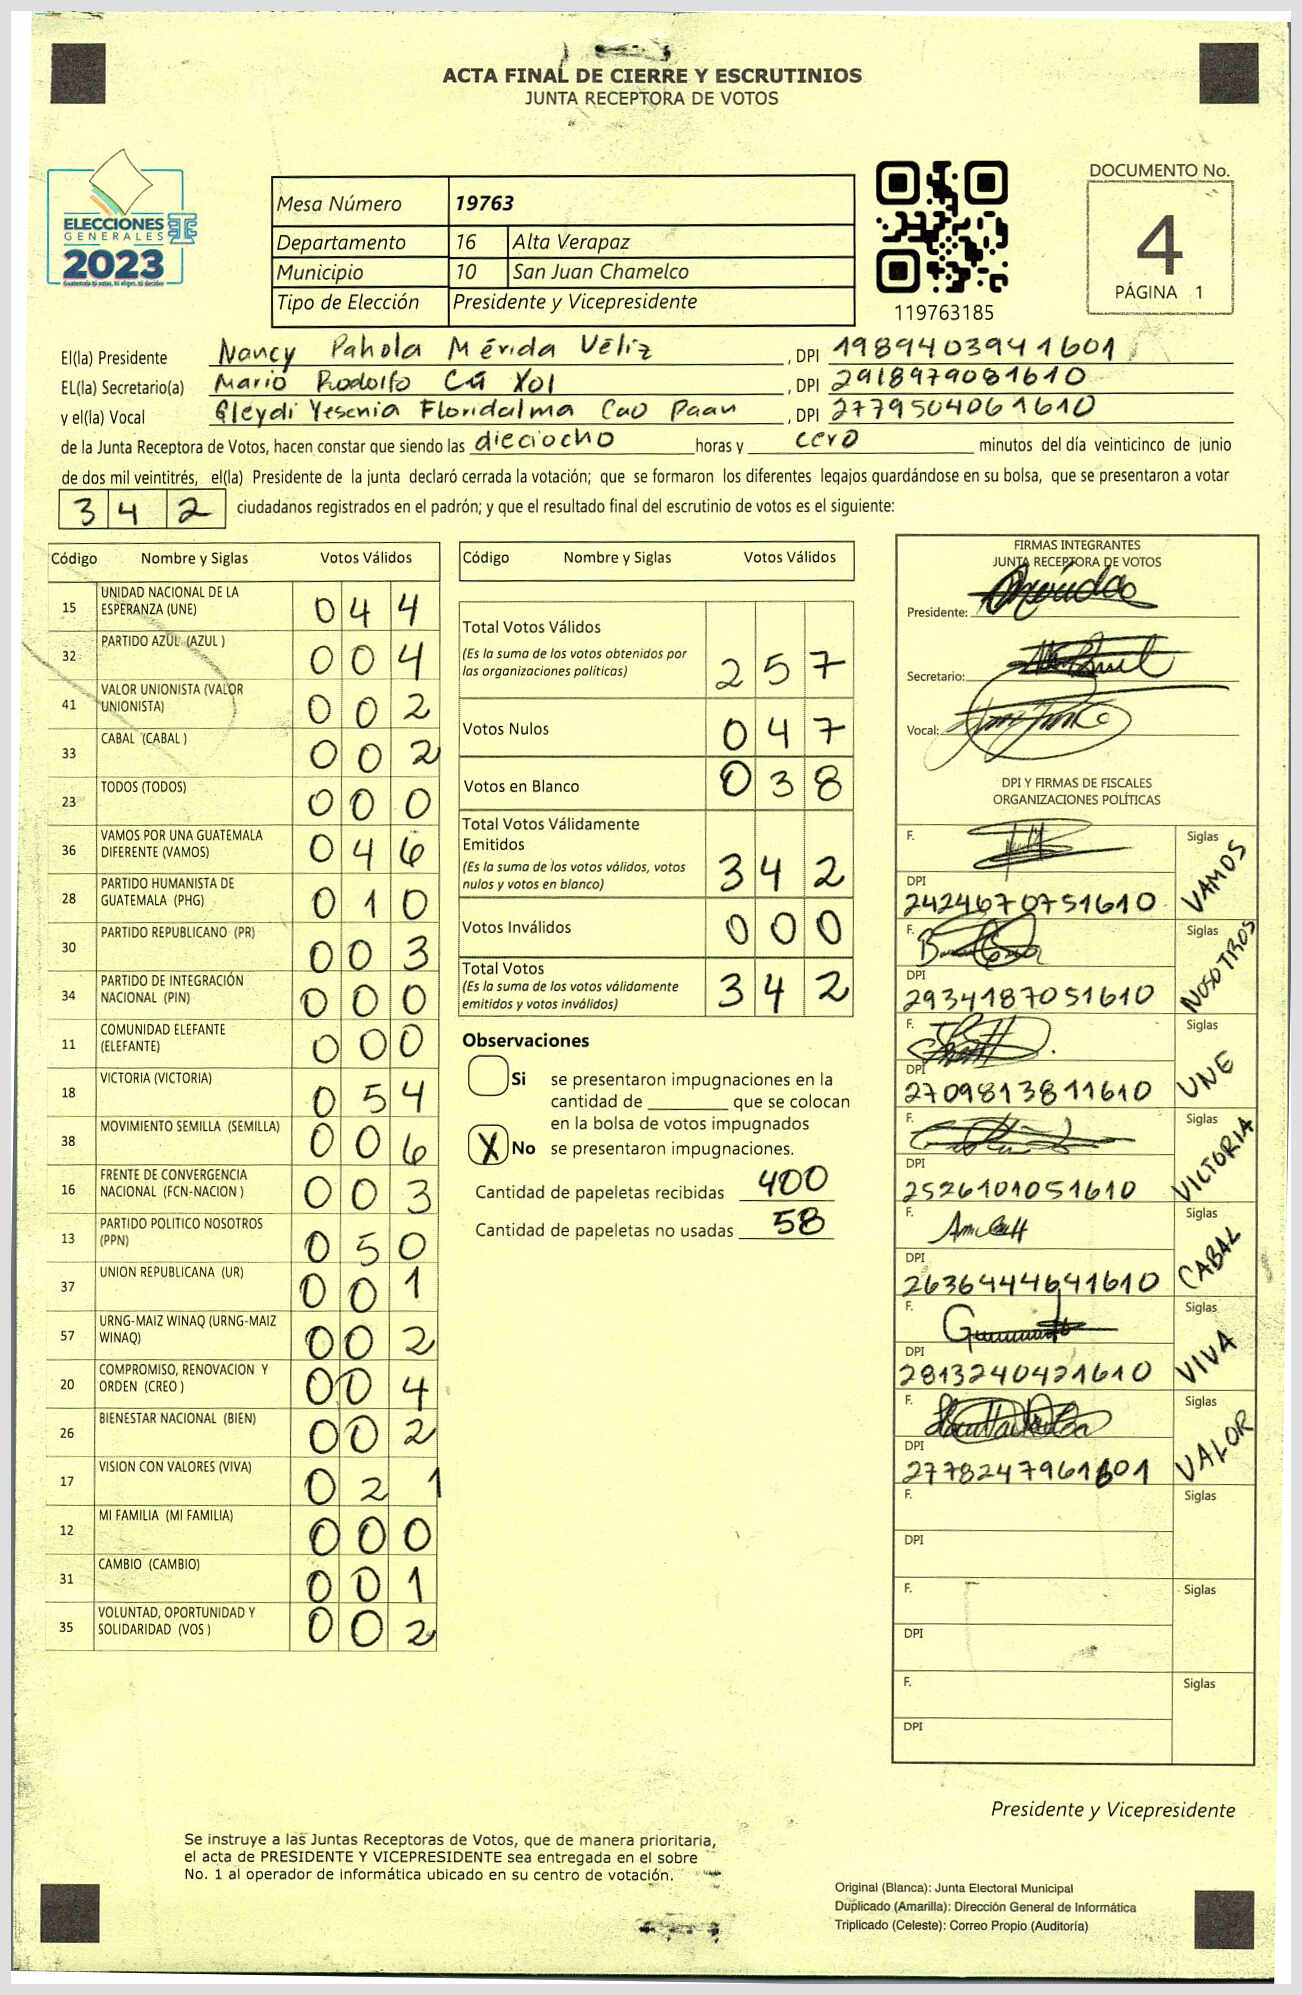 ACTA FINAL DE CIERRE Y ESCRUTINIOS
JUNTA RECEPTORA DE VOTOS
ELECCIONES
GENERALES
2023
Mesa Número 19763
Departamento 16 Alta Verapaz
Municipio 10 San Juan Chamelco
Tipo de Elección Presidente y Vicepresidente
119763185
DOCUMENTO No.
4
PÁGINA 1
El(la) Presidente Nancy Pahola Mérida Véliz, DPI 1989403941601
EL(la) Secretario(a) Mario Rodolfo Cú Xol, DPI 2918979081610
y el(la) Vocal Gleydi Yesenia Floridalma Cao Paan, DPI 2779504061610
de la Junta Receptora de Votos, hacen constar que siendo las dieciocho horas y cero minutos del día veinticinco de junio
de dos mil veintitrés, el(la) Presidente de la junta declaró cerrada la votación; que se formaron los diferentes legajos guardándose en su bolsa, que se presentaron a votar
342 ciudadanos registrados en el padrón; y que el resultado final del escrutinio de votos es el siguiente:
Código Nombre y Siglas Votos Válidos
15 UNIDAD NACIONAL DE LA ESPERANZA (UNE) 044
32 PARTIDO AZUL (AZUL ) 004
41 VALOR UNIONISTA (VALOR UNIONISTA) 002
33 CABAL (CABAL ) 002
23 TODOS (TODOS) 000
36 VAMOS POR UNA GUATEMALA DIFERENTE (VAMOS) 046
28 PARTIDO HUMANISTA DE GUATEMALA (PHG) 010
30 PARTIDO REPUBLICANO (PR) 003
34 PARTIDO DE INTEGRACIÓN NACIONAL (PIN) 000
11 COMUNIDAD ELEFANTE (ELEFANTE) 000
18 VICTORIA (VICTORIA) 054
38 MOVIMIENTO SEMILLA (SEMILLA) 006
16 FRENTE DE CONVERGENCIA NACIONAL (FCN-NACION ) 003
13 PARTIDO POLITICO NOSOTROS (PPN) 050
37 UNION REPUBLICANA (UR) 001
57 URNG-MAIZ WINAQ (URNG-MAIZ WINAQ) 002
20 COMPROMISO, RENOVACION Y ORDEN (CREO ) 004
26 BIENESTAR NACIONAL (BIEN) 002
17 VISION CON VALORES (VIVA) 021
12 MI FAMILIA (MI FAMILIA) 000
31 CAMBIO (CAMBIO) 001
35 VOLUNTAD, OPORTUNIDAD Y SOLIDARIDAD (VOS ) 002
Código Nombre y Siglas Votos Válidos
Total Votos Válidos 257
(Es la suma de los votos obtenidos por
las organizaciones politicas)
Votos Nulos 047
Votos en Blanco 038
Total Votos Válidamente
Emitidos
(Es la suma de los votos válidos, votos
nulos y votos en blanco) 342
Votos Inválidos 000
Total Votos
(Es la suma de los votos válidamente
emitidos y votos inválidos) 342
Observaciones
Si se presentaron impugnaciones en la
cantidad de ________ que se colocan
en la bolsa de votos impugnados
X No se presentaron impugnaciones.
Cantidad de papeletas recibidas 400
Cantidad de papeletas no usadas 58
FIRMAS INTEGRANTES
JUNTA RECEPTORA DE VOTOS
Presidente:
Secretario:
Vocal:
DPI Y FIRMAS DE FISCALES
ORGANIZACIONES POLÍTICAS
F. Siglas VAMOS
DPI
2424670751610
F. Siglas NOSOTROS
DPI
2934187051610
F. Siglas UNE
DPI
2709813811610
F. Siglas VICTORIA
DPI
2526101051610
F. Siglas CABAL
DPI
2636444641610
F. Siglas VIVA
DPI
2813240421610
F. Siglas VALOR
DPI
2778247961601
F. Siglas
DPI
F. Siglas
DPI
F. Siglas
DPI
Presidente y Vicepresidente
Se instruye a las Juntas Receptoras de Votos, que de manera prioritaria,
el acta de PRESIDENTE Y VICEPRESIDENTE sea entregada en el sobre
No. 1 al operador de informática ubicado en su centro de votación.
Original (Blanca): Junta Electoral Municipal
Duplicado (Amarilla): Dirección General de Informática
Triplicado (Celeste): Correo Propio (Auditoría)